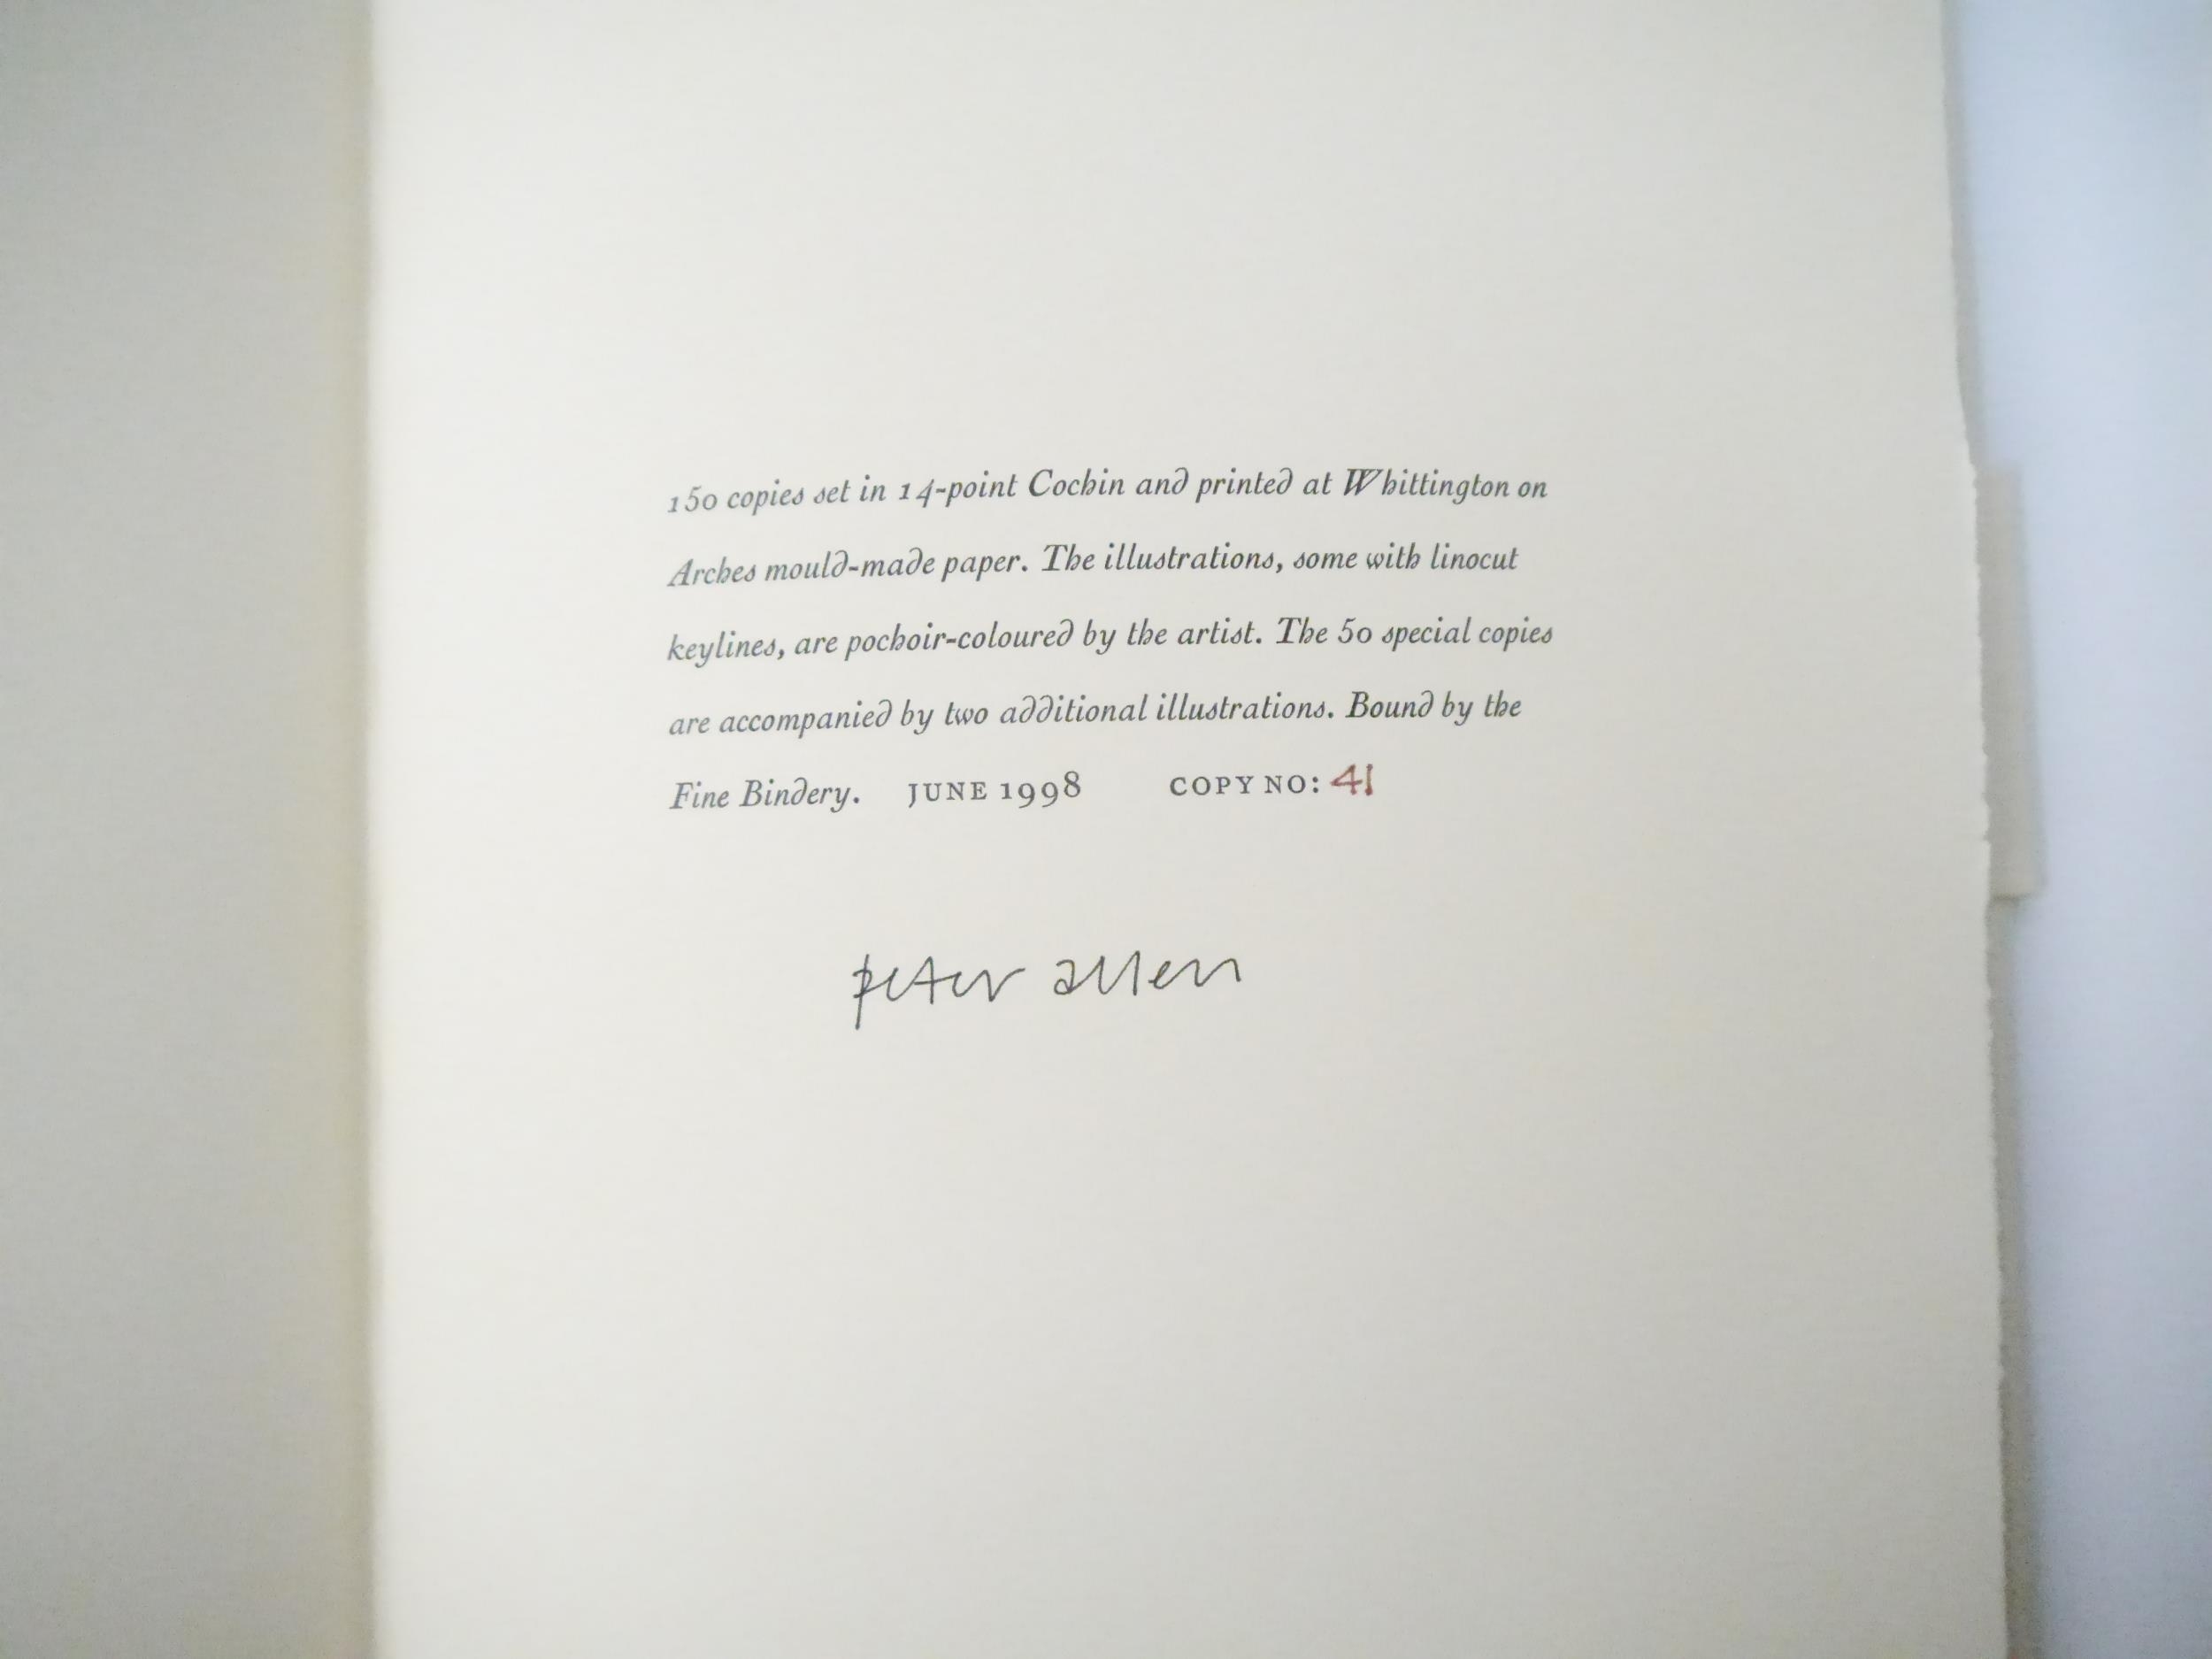 150 copies set in 14-point Cochin and printed at Whittington on
Arches mould-made paper. The illustrations, some with linocut
keylines, are pochoir-coloured by the artist. The 50 special copies
are accompanied by two additional illustrations. Bound by the
Fine Bindery. JUNE 1998 COPY NO: 41
peter allen